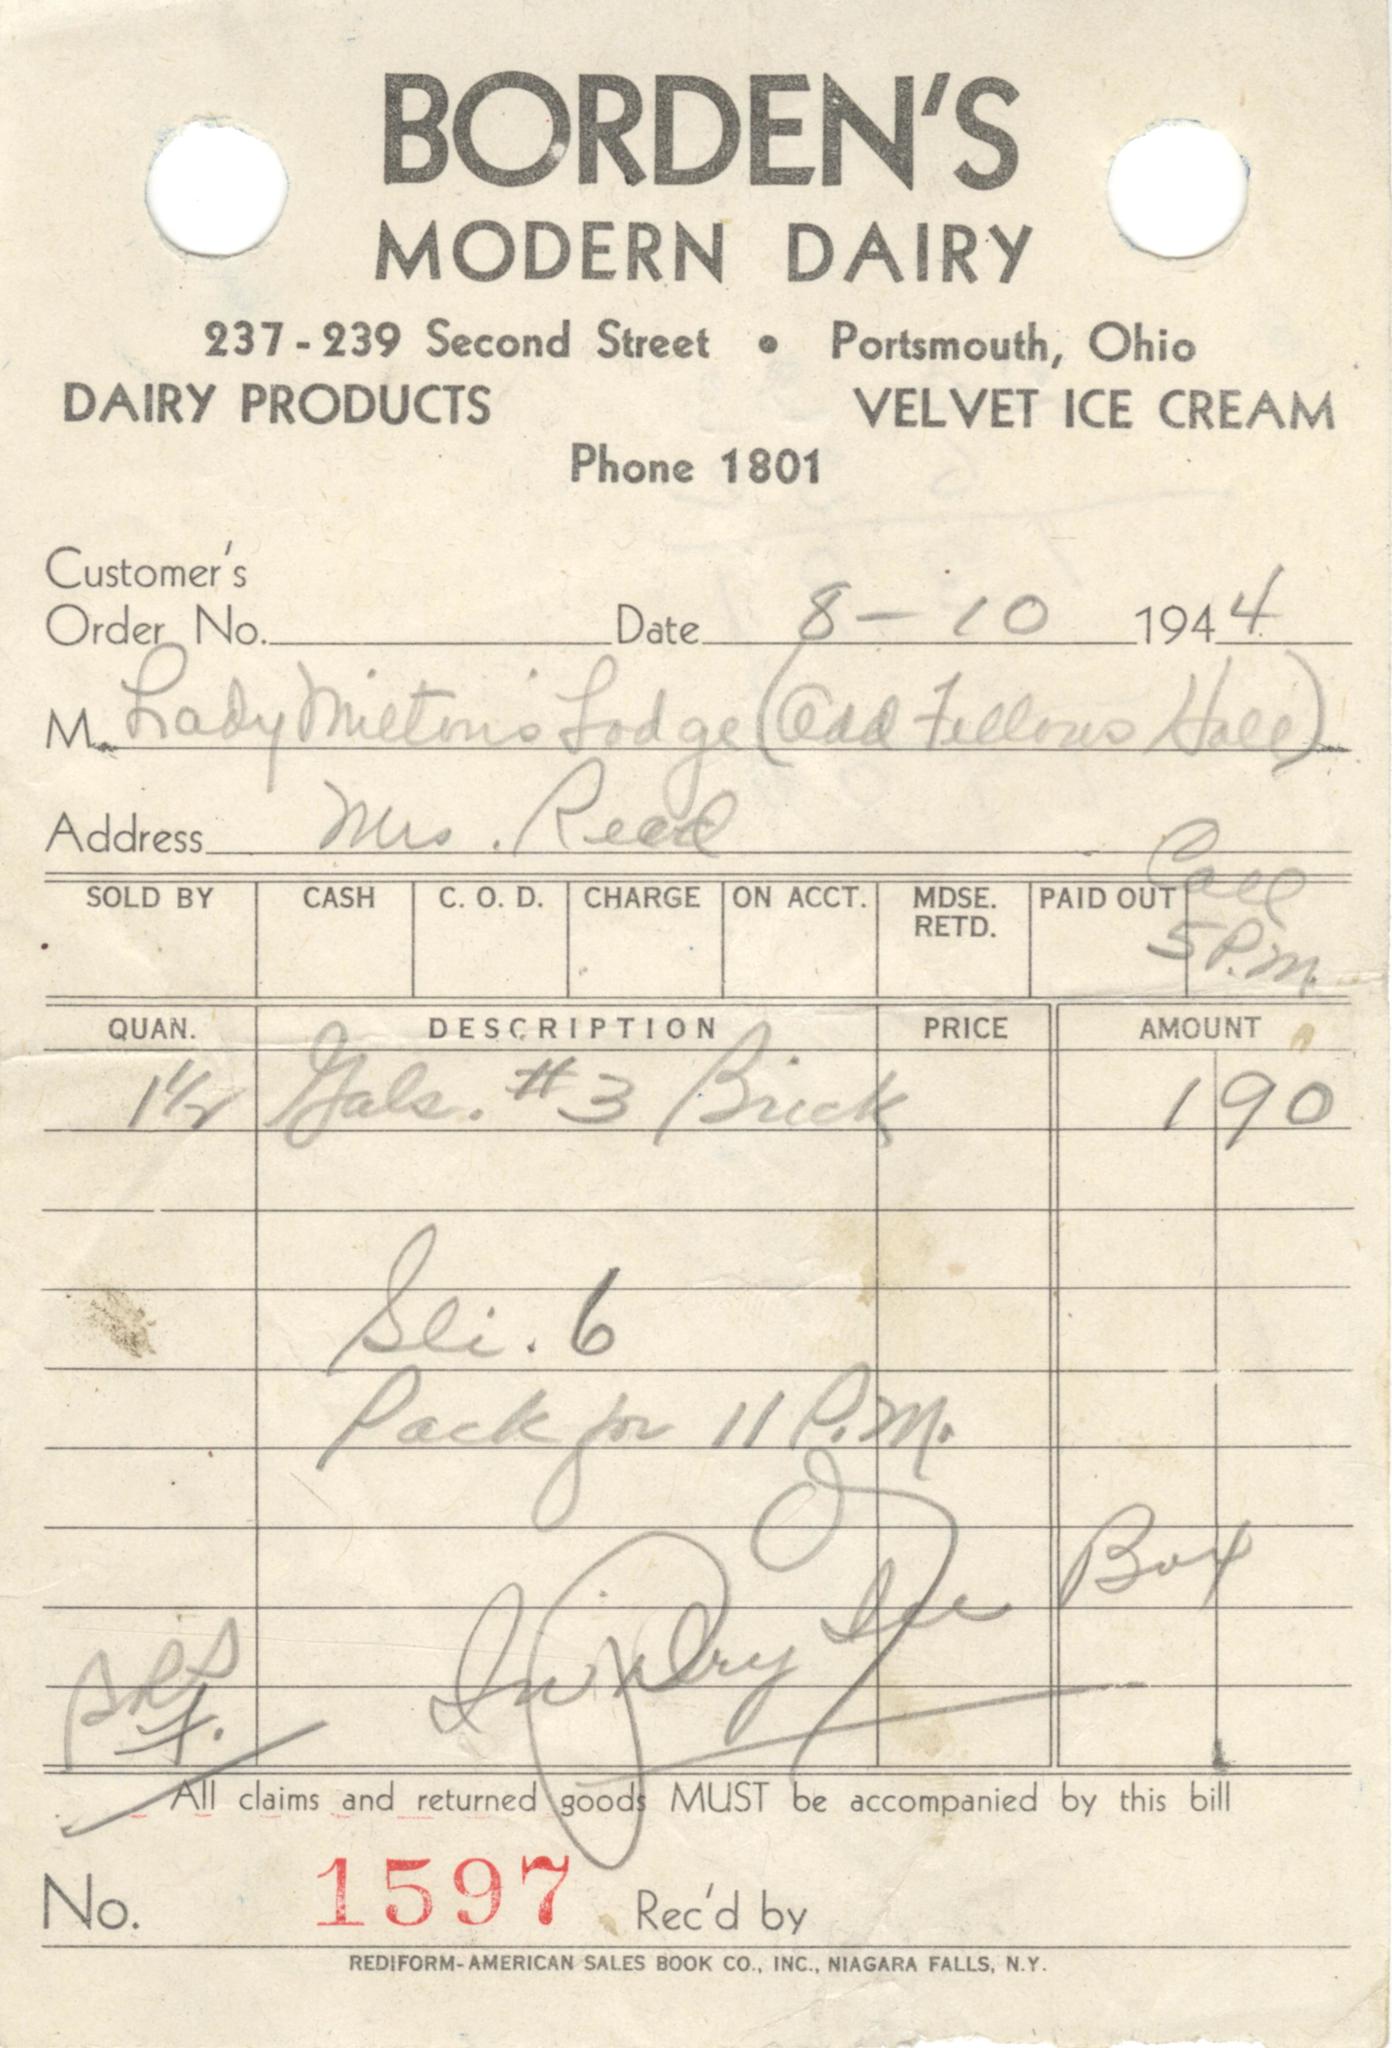 BORDEN'S
MODERN DAIRY
237-239 Second Street • Portsmouth, Ohio
DAIRY PRODUCTS VELVET ICE CREAM
Phone 1801
Customer's
Order No. Date 8-10 1944
M. Lady Milton's Lodge (Odd Fellows Hall)
Address Mrs. Read
Call
SOLD BY CASH C. O. D. CHARGE ON ACCT. MDSE. RETD. PAID OUT
5 P.M.
QUAN. DESCRIPTION PRICE AMOUNT
1 1/2 Gals. #3 Brick 1 90
Sli. 6
Pack for 11 P.M.
In Dry Ice Box
All claims and returned goods MUST be accompanied by this bill
No. 1597 Rec'd by
REDIFORM-AMERICAN SALES BOOK CO., INC., NIAGARA FALLS, N.Y.